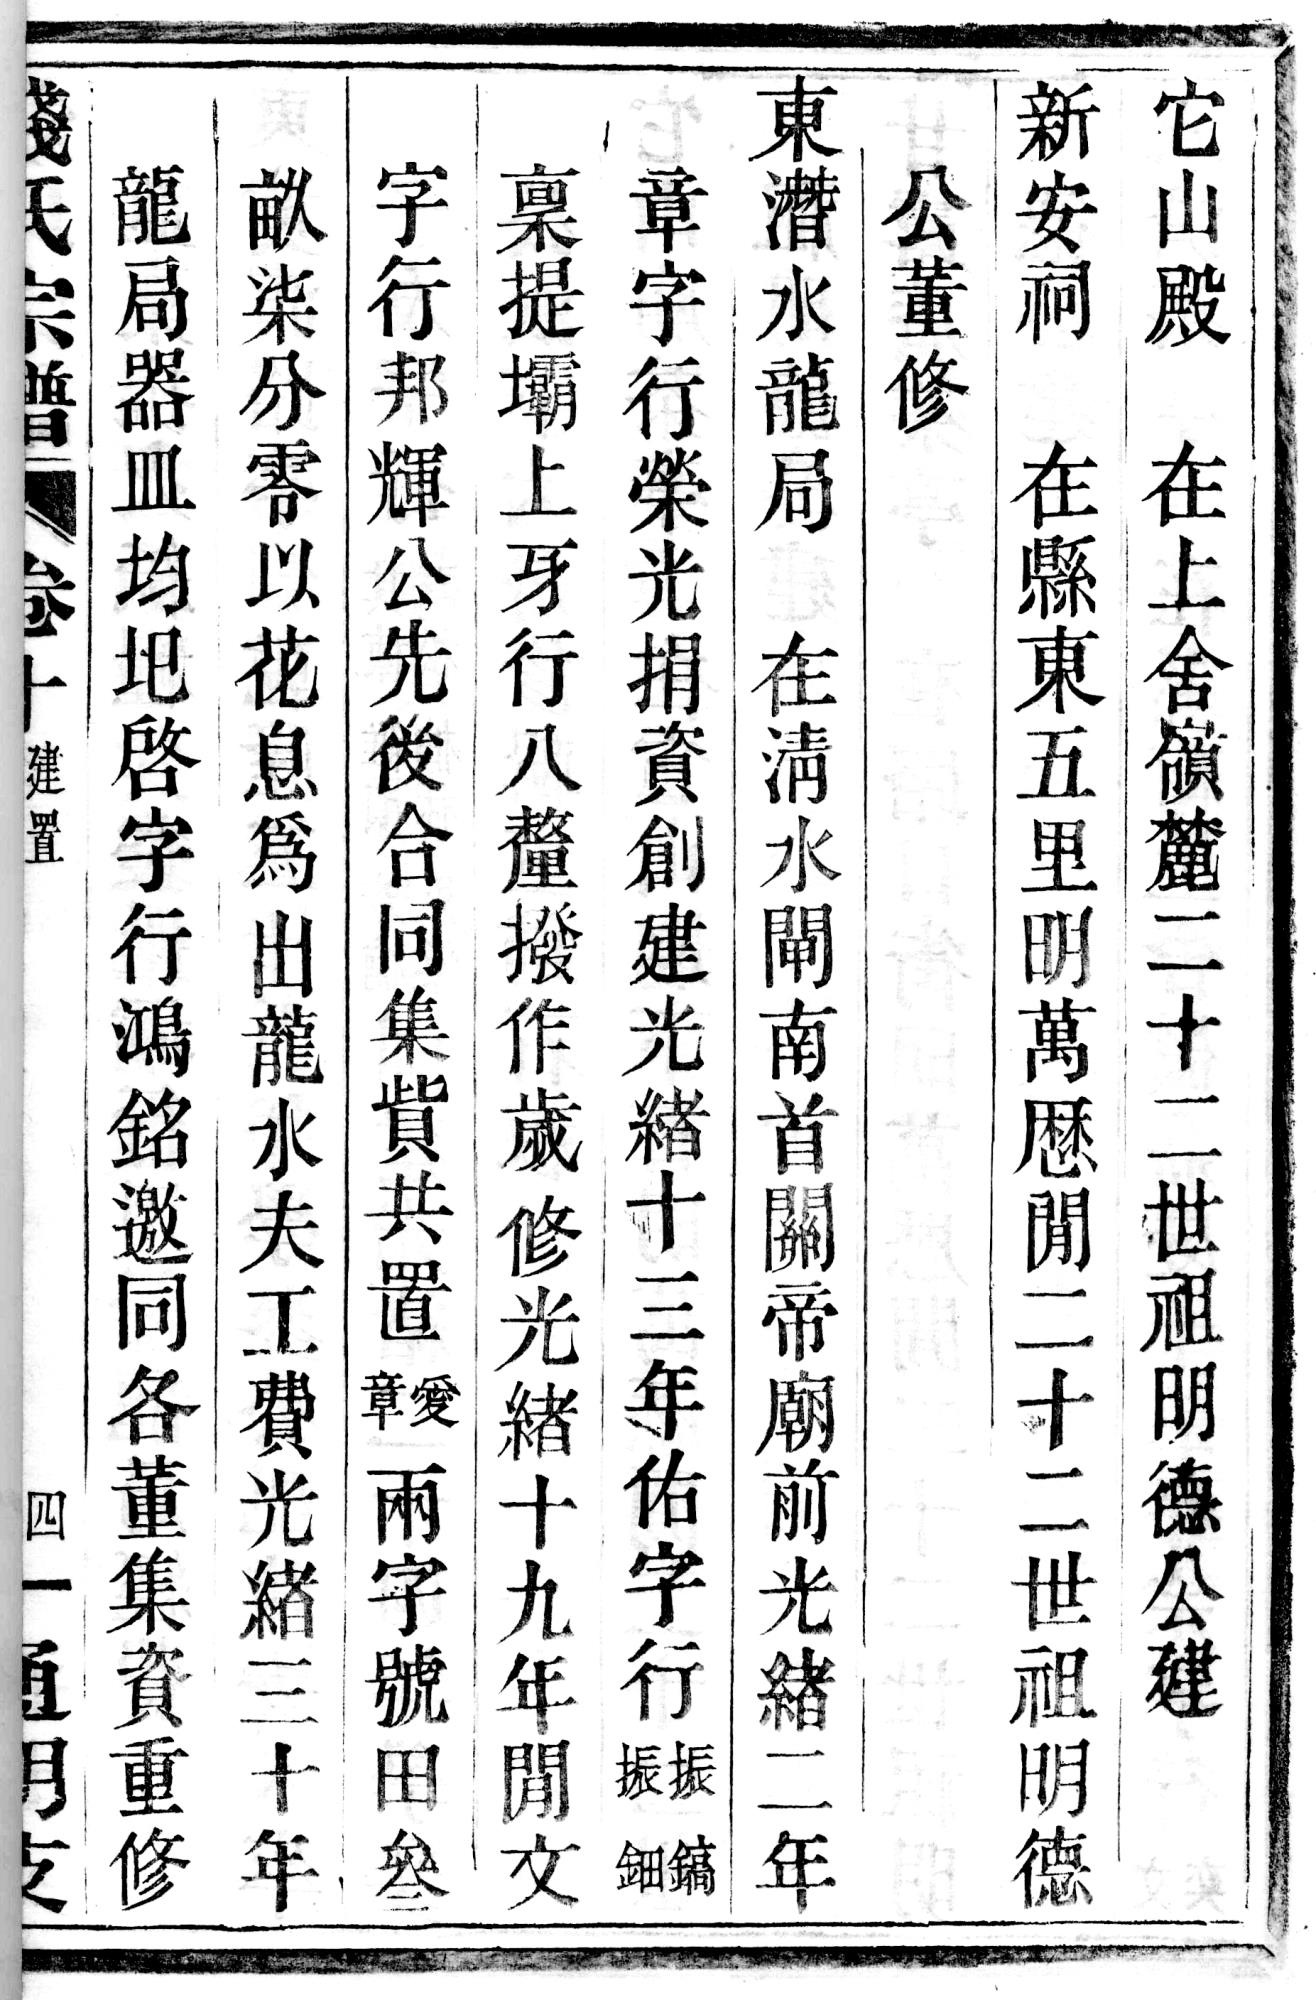 它山殿　在上舍嶺麓二十二世祖明德公建
新安祠　在縣東五里明萬厯閒二十二世祖明德
公董修
東濳水龍局　在淸水閘南首關帝廟前光緒二年
章字行榮光捐資創建光緒十三年佑字行振鎬振鈿
稟提壩上牙行八釐撥作歲修光緒十九年閒文
字行邦輝公先後合同集貲共置愛章兩字號田叄
畝柒分零以花息爲出龍水夫工費光緒三十年
龍局器皿均圯啓字行鴻銘邀同各董集資重修
錢氏宗譜　卷十　建置　四一　通明支